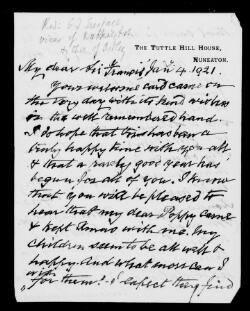 Rev: C J
vicar of
& then of
THE TUTTLE HILL HOUSE,
NUNEATON.
My dear Sir Francis, Jan 4. 1921.
Your welcome card came on
the very day with its kind wishes
in the well remembered hand.
I do hope that Xmas has been a
truly happy time with you all
& that a really good year has
begun for all of you. I know
that you will be pleased to
hear that my dear Poppy came
& kept Xmas with me. My
children seem to be all well &
happy. And what more can I
wish
for them? I expect they find